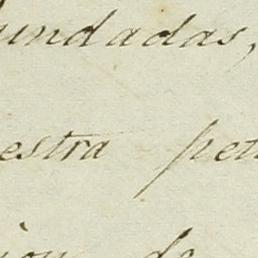 undadas,
estra pet
ion de